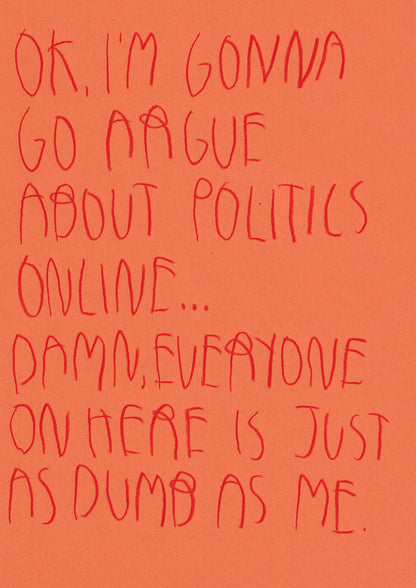 OK, I'M GONNA
GO ARGUE
ABOUT POLITICS
ONLINE...
DAMN, EVERYONE
ON HERE IS JUST
AS DUMB AS ME.